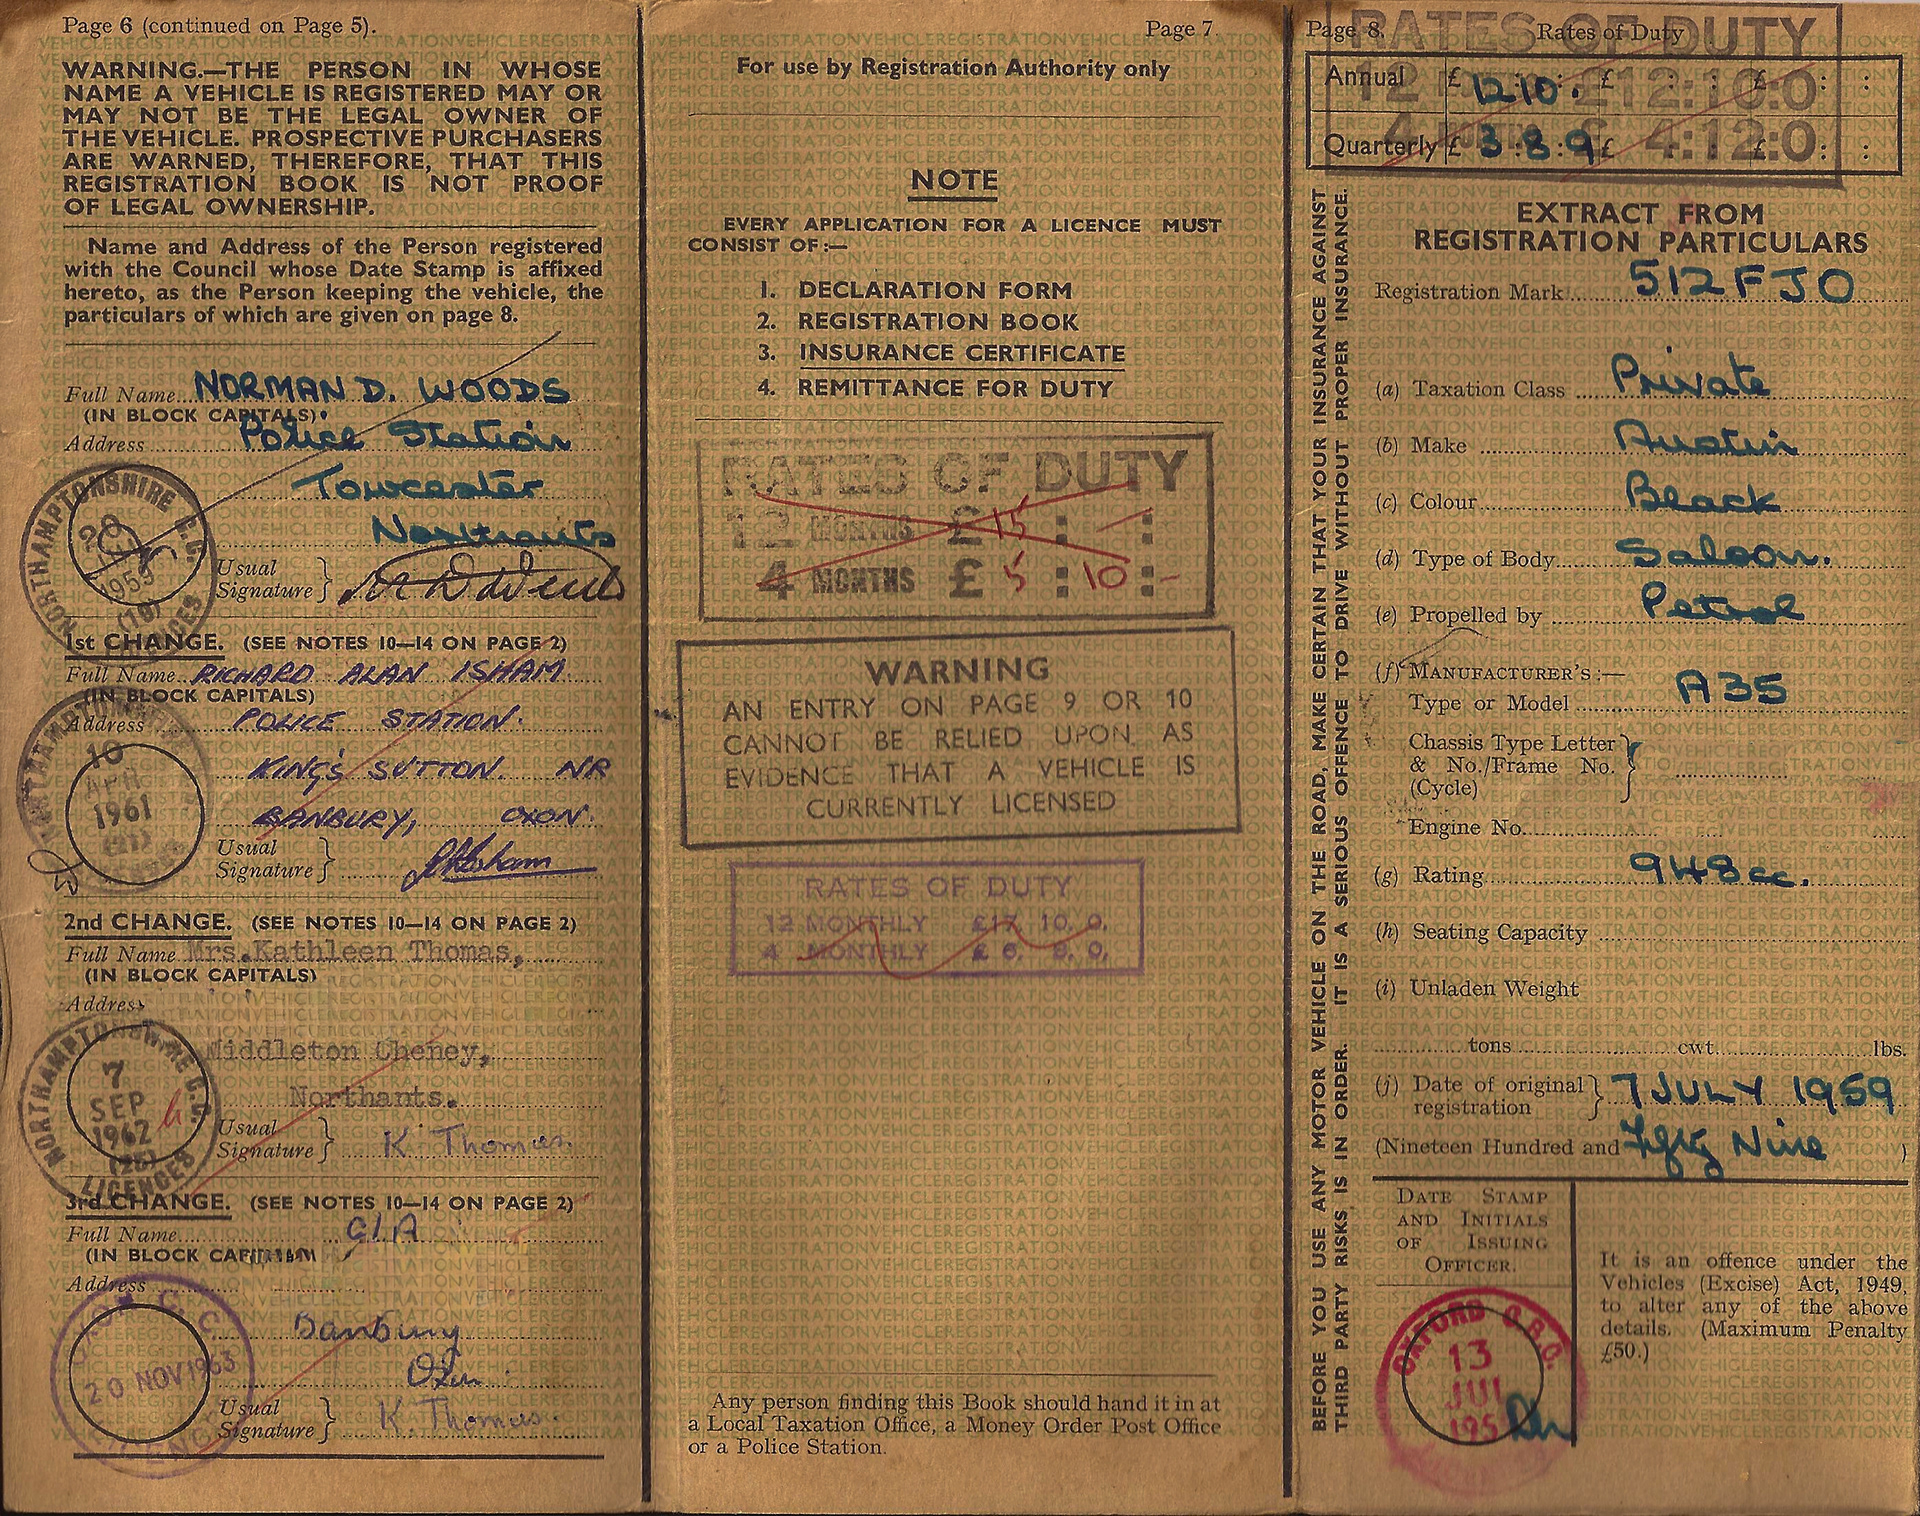 Page 6 (continued on Page 5).
WARNING.—THE PERSON IN WHOSE
NAME A VEHICLE IS REGISTERED MAY OR
MAY NOT BE THE LEGAL OWNER OF
THE VEHICLE. PROSPECTIVE PURCHASERS
ARE WARNED, THEREFORE, THAT THIS
REGISTRATION BOOK IS NOT PROOF
OF LEGAL OWNERSHIP.
Name and Address of the Person registered
with the Council whose Date Stamp is affixed
hereto, as the Person keeping the vehicle, the
particulars of which are given on page 8.
Full Name NORMAN D. WOODS
(IN BLOCK CAPITALS)
Address Police Station
Towcester
Northants
Usual
Signature }
NORTHAMPTONSHIRE C.C.
20
1959
(19)
LICENCES
1st CHANGE. (SEE NOTES 10—14 ON PAGE 2)
Full Name RICHARD ALAN ISHAM
(IN BLOCK CAPITALS)
Address POLICE STATION.
KING'S SUTTON. NR
BANBURY, OXON.
Usual
Signature } Isham
10
APR
1961
(21)
2nd CHANGE. (SEE NOTES 10—14 ON PAGE 2)
Full Name Mrs. Kathleen Thomas,
(IN BLOCK CAPITALS)
Address
Middleton Cheney,
Northants.
Usual
Signature } K Thomas.
NORTHAMPTONSHIRE C.C.
7
SEP
1962
(25)
LICENCES
3rd CHANGE. (SEE NOTES 10—14 ON PAGE 2)
Full Name C/A
(IN BLOCK
Address
Banbury
Oxon.
Usual
Signature } K Thomas.
C.C.
20 NOV 1963
Page 7.
For use by Registration Authority only
NOTE
EVERY APPLICATION FOR A LICENCE MUST
CONSIST OF:—
1. DECLARATION FORM
2. REGISTRATION BOOK
3. INSURANCE CERTIFICATE
4. REMITTANCE FOR DUTY
RATES OF DUTY
12 MONTHS £ 15 : — :
4 MONTHS £ 5 : 10 : —
WARNING
AN ENTRY ON PAGE 9 OR 10
CANNOT BE RELIED UPON AS
EVIDENCE THAT A VEHICLE IS
CURRENTLY LICENSED
RATES OF DUTY
12 MONTHLY £17. 10. 0.
4 MONTHLY £ 6. 8. 0.
Any person finding this Book should hand it in at
a Local Taxation Office, a Money Order Post Office
or a Police Station.
BEFORE YOU USE ANY MOTOR VEHICLE ON THE ROAD, MAKE CERTAIN THAT YOUR INSURANCE AGAINST
THIRD PARTY RISKS IS IN ORDER. IT IS A SERIOUS OFFENCE TO DRIVE WITHOUT PROPER INSURANCE.
Page 8. Rates of Duty
RATES OF DUTY
12 MONTHS £12:10:0
4 MONTHS £ 4:12:0
Annual £ 12 10. £ : : £ : :
Quarterly £ 3 : 8 : 9 £ : : £ : :
EXTRACT FROM
REGISTRATION PARTICULARS
Registration Mark 512 FJO
(a) Taxation Class Private
(b) Make Austin
(c) Colour Black
(d) Type of Body Saloon.
(e) Propelled by Petrol
(f) MANUFACTURER'S:—
Type or Model A35
Chassis Type Letter
& No./Frame No.
(Cycle)
Engine No.
(g) Rating 948cc.
(h) Seating Capacity
(i) Unladen Weight
tons cwt. lbs.
(j) Date of original
registration } 7 JULY 1959
(Nineteen Hundred and Fifty Nine )
DATE STAMP
AND INITIALS
OF ISSUING
OFFICER.
OXFORD C.B.C.
13
JUL
195
It is an offence under the
Vehicles (Excise) Act, 1949,
to alter any of the above
details. (Maximum Penalty
£50.)